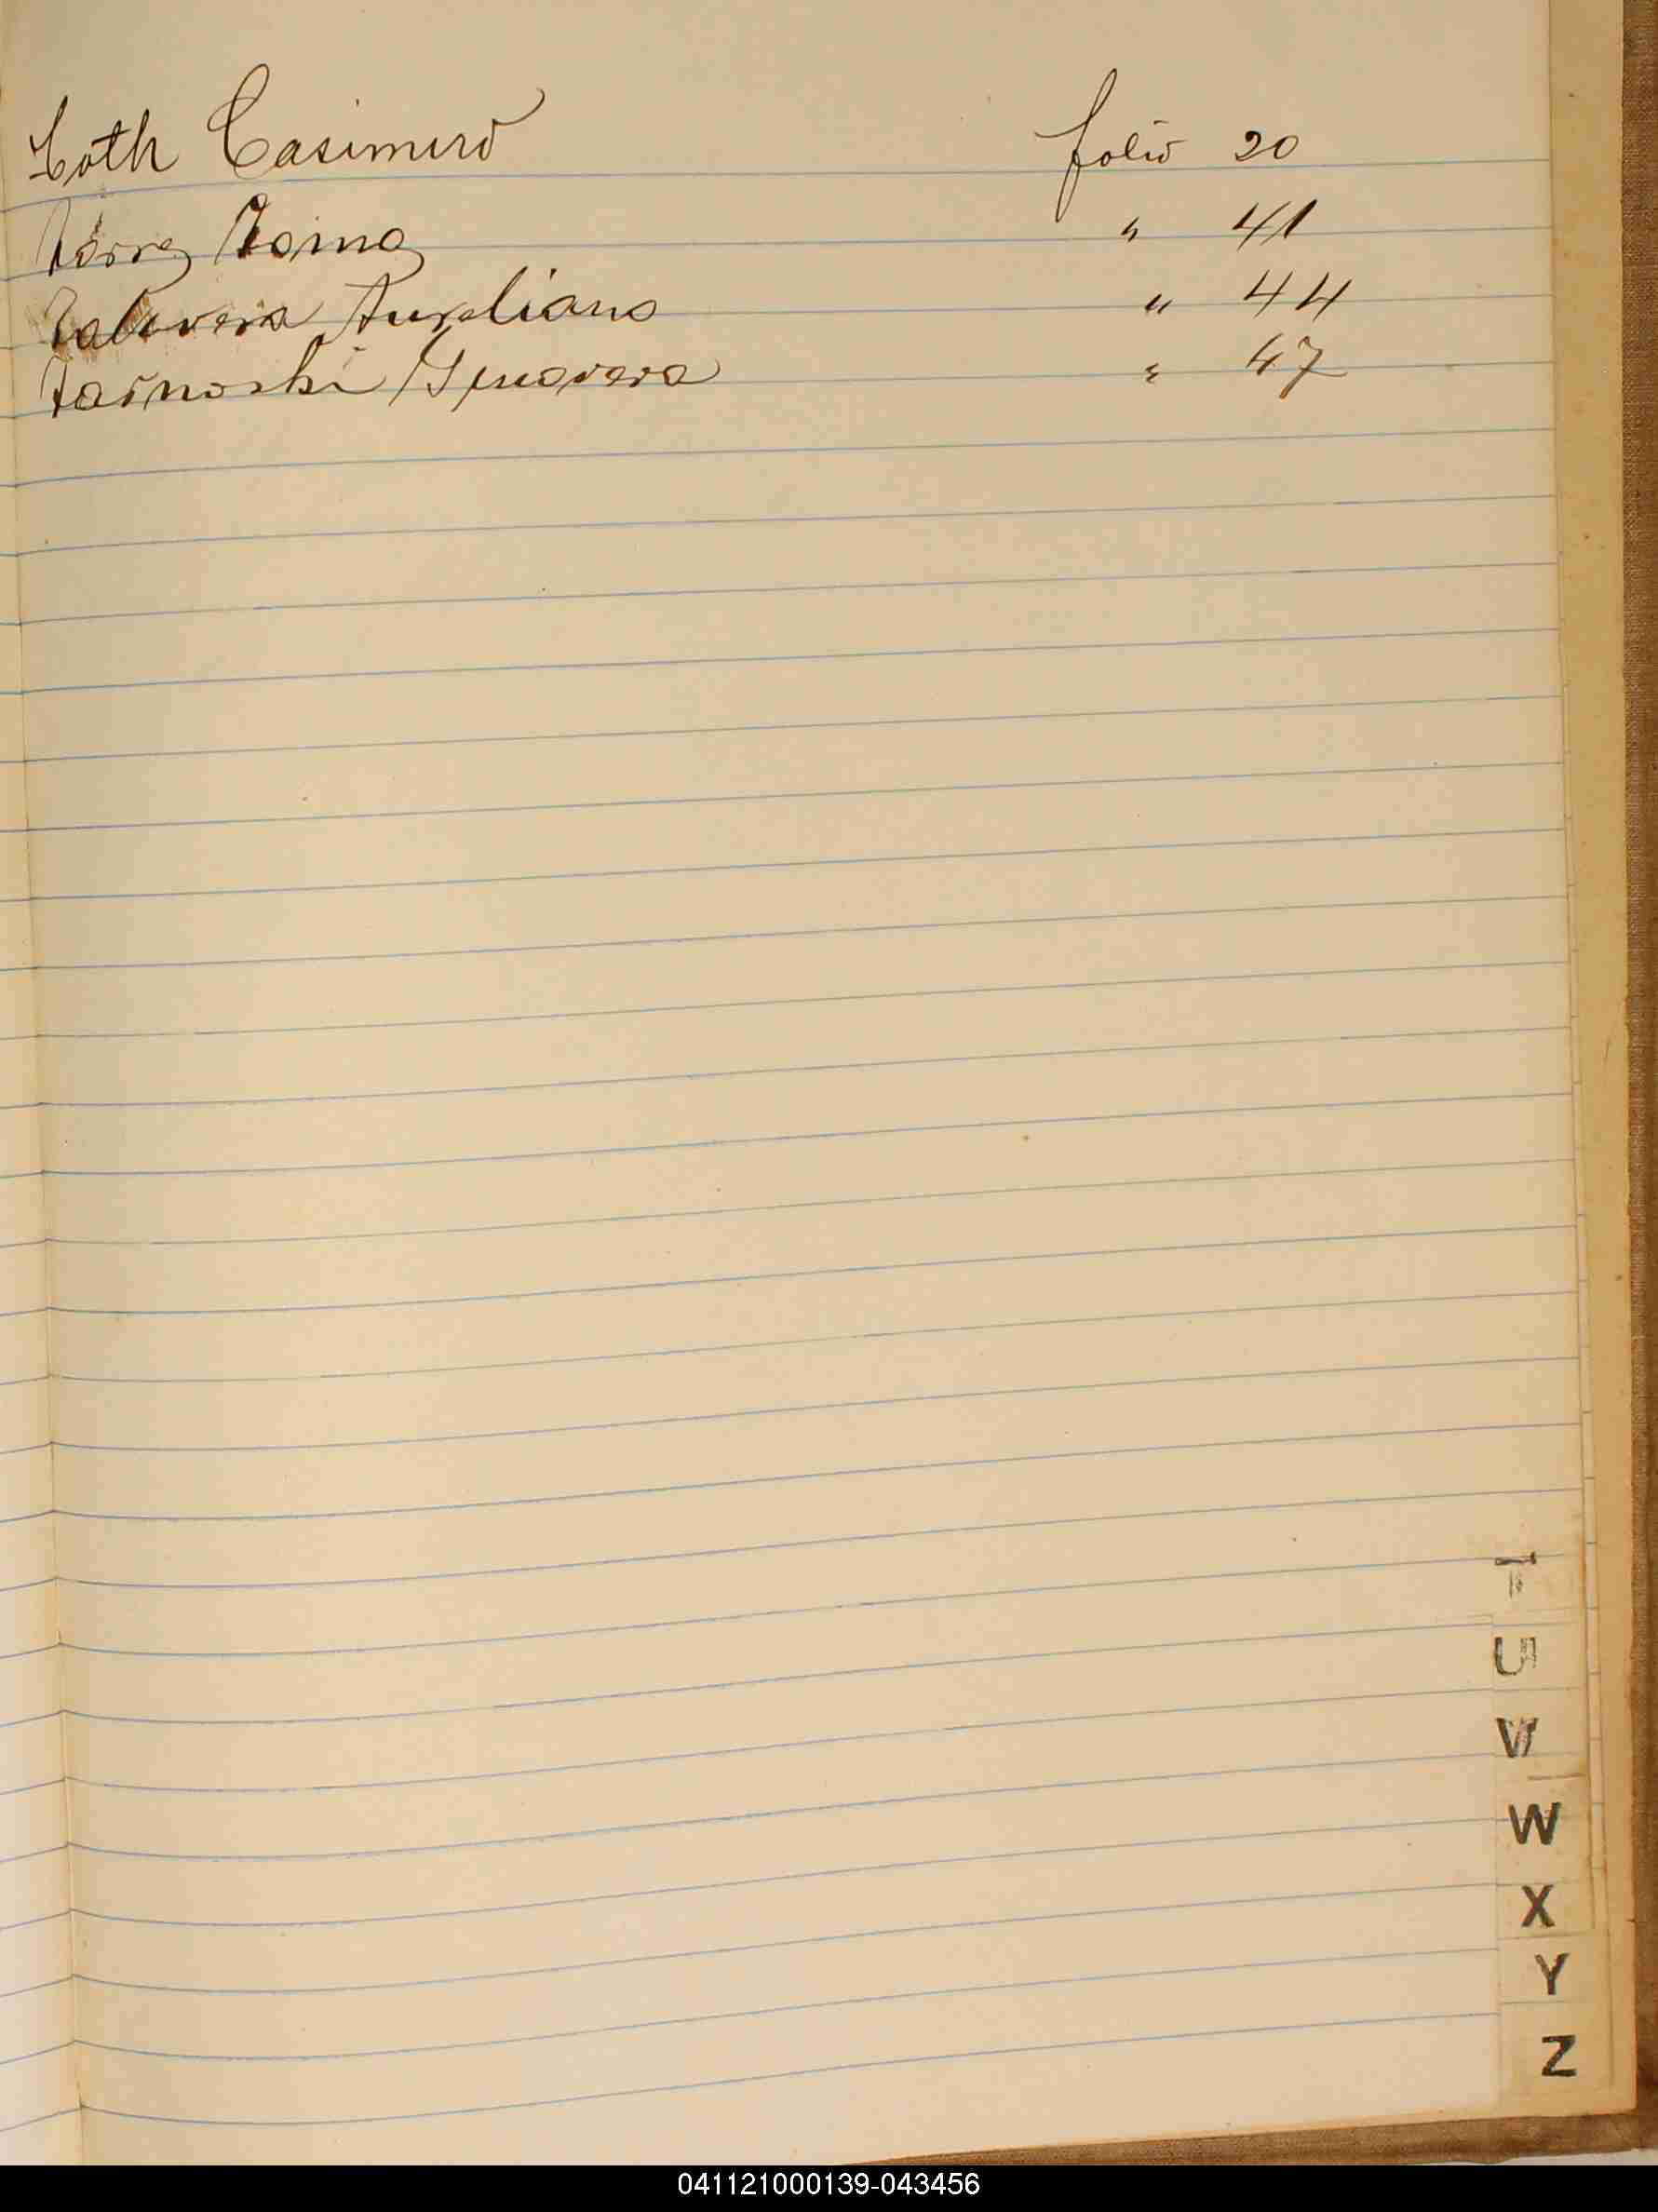 Toth Casimiro folio 20
Torres Tomas " 41
Talavera Aureliano " 44
Tarnoski Genovera " 47
T
U
V
W
X
Y
Z
041121000139-043456